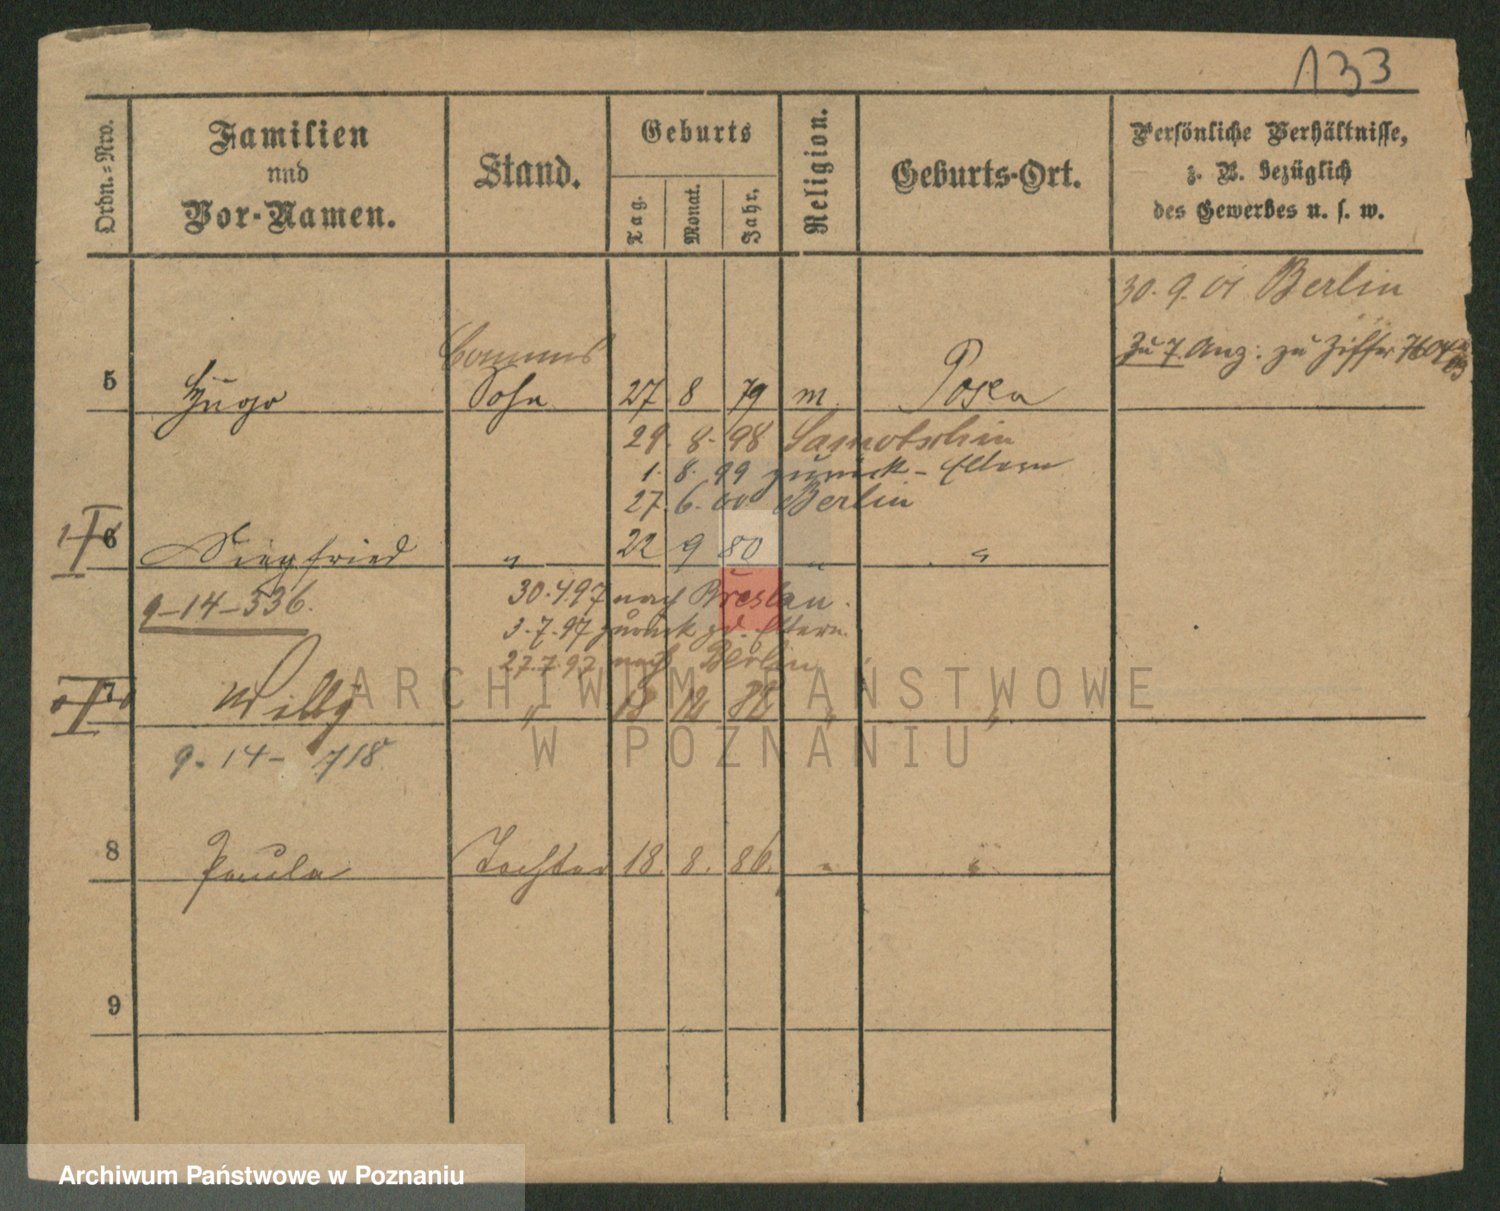 133
Ordn.-Nro.
Familien
und
Vor-Namen.
Stand.
Geburts
Tag.
Monat.
Jahr.
Religion.
Geburts-Ort.
Persönliche Verhältnisse,
z. B. bezüglich
des Gewerbes u. s. w.
30. 9. 01 Berlin
Zu 7. Ang: zu Ziffer
Commis
5 Hugo Sohn 27 8 79 m. Posen
29. 8. 98 Samotschin
1. 8. 99 zurück - Eltern
27. 6. 00 Berlin
6 Siegfried " 22 9 80 " "
9-14-536.
30.4.97 nach Breslau.
3.7.97 zurück z. d. Eltern.
27.7.97 nach Berlin
7 Willy " 18 12 82 " "
9-14-718
8 Paula Tochter 18. 8. 86. " "
9
ARCHIWUM PAŃSTWOWE
W POZNANIU
Archiwum Państwowe w Poznaniu